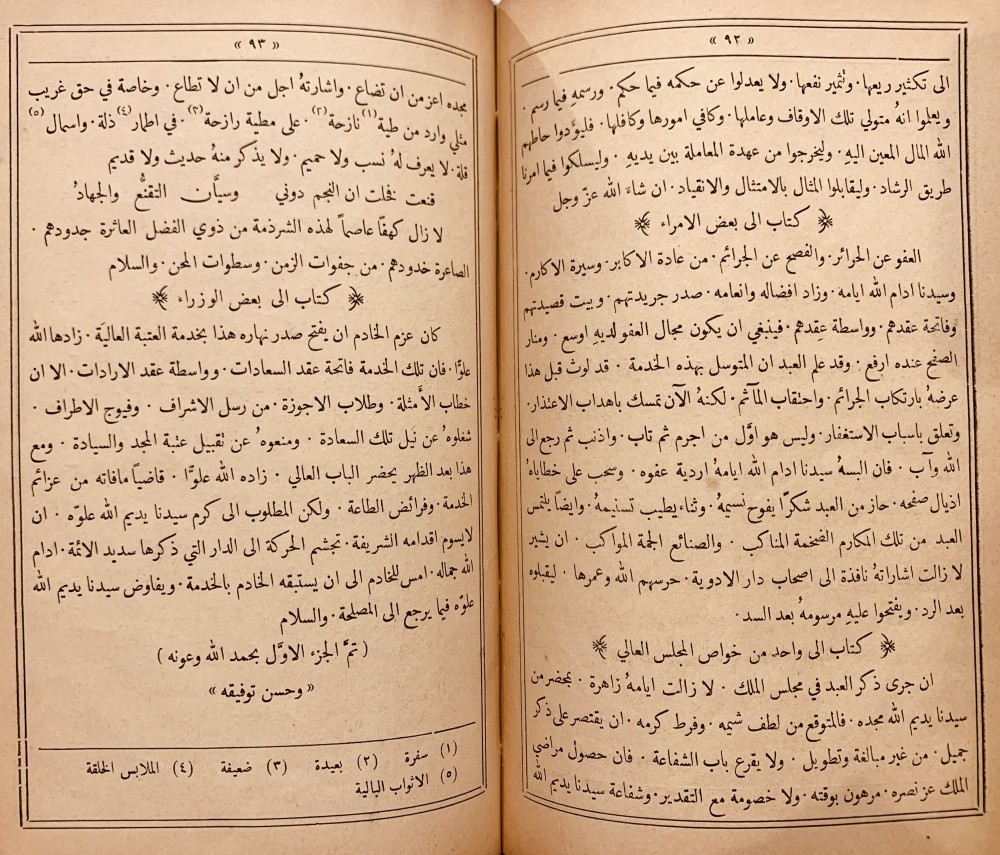 « ٩٢ »
الى تكثير ريعها · وتثمير نفعها · ولا يعدلوا عن حكمه فيما حكم · ورسمهِ فيما رسم ·
ويعلموا انهُ متولي تلك الاوقاف وعاملها · وكافي امورها وكافلها · فليؤَدوا حاطهم
الله المال المعين اليهِ · وليخرجوا من عهدة المعاملة بين يديهِ · وليسلكوا فيما امرنا
طريق الرشاد · وليقابلوا المثال بالامتثال والانقياد · ان شاءَ الله عزّ وجل
كتاب الى بعض الامراء
العفو عن الجرائر · والفصح عن الجرائم · من عادة الاكابر · وسيرة الاكارم ·
وسيدنا ادام الله ايامه · وزاد افضاله وانعامه · صدر جريدتهم · وبيت قصيدتهم
وفاتحة عقدهم · وواسطة عقِدهم · فينبغي ان يكون مجال العفو لديهِ اوسع · ومنار
الصفح عنده ارفع · وقد علم العبد ان المتوسل بهذه الخدمة · قد لوث قبل هذا
عرضهُ بارتكاب الجرائم · واحتقاب المآثم · لكنهُ الآن تمسك باهداب الاعتذار ·
وتعلق باسباب الاستغفار · وليس هو اوَّل من اجرم ثم تاب · واذنب ثم رجع الى
الله وآب · فان البسهُ سيدنا ادام الله ايامهُ اردية عفوه · وسحب على خطاياهُ
اذيال صفحه · حاز من العبد شكرًا يفوح نسيمهُ · وثناء يطيب تسنيمهُ · وايضاً يلتمس
العبد من تلك المكارم الضخمة المناكب · والصنائع الجمة المواكب · ان يشير
لا زالت اشاراتهُ نافذة الى اصحاب دار الادوية · حرسهم الله وعمرها · ليقبلوه
بعد الرد · ويفتحوا عليهِ مرسومهُ بعد السد ·
كتاب الى واحد من خواص المجلس العالي
ان جرى ذكر العبد في مجلس الملك · لا زالت ايامهُ زاهرة · بمحضر من
سيدنا يديم الله مجده · فالمتوقع من لطف شيمه · وفرط كرمه · ان يقتصر على ذكر
جميل · من غير مبالغة وتطويل · ولا يقرع باب الشفاعة · فان حصول مراضي
الملك عز نصره · مرهون بوقته · ولا خصومة مع التقدير · وشفاعة سيدنا يديم الله
« ٩٣ »
مجده اعز من ان تضاع · واشارتهُ اجل من ان لا تطاع · وخاصة في حق غريب
مثلي وارد من طية (١) نازحة (٢) · على مطية رازحة (٣) · في اطمار (٤) ذلة · واسمال (٥)
قلة · لا يعرف لهُ نسب ولا حميم · ولا يذكر منهُ حديث ولا قديم
قنعت فخلت ان النجم دوني وسيَّان التقنُّع والجهادُ
لا زال كهفًا عاصماً لهذه الشرذمة من ذوي الفضل العاثرة جدودهم ·
الصاعرة خدودهم · من جفوات الزمن · وسطوات المحن · والسلام
كتاب الى بعض الوزراء
كان عزم الخادم ان يفتح صدر نهاره هذا بخدمة العتبة العالية · زادها الله
علوًّا · فان تلك الخدمة فاتحة عقد السعادات · وواسطة عقد الارادات · الا ان
خطاب الأمثلة · وطلاب الاجوزة · من رسل الاشراف · وفيوج الاطراف ·
شغلوهُ عن نيل تلك السعادة · ومنعوهُ عن تقبيل عتبة المجد والسيادة · ومع
هذا بعد الظهر يحضر الباب العالي · زاده الله علوًّا · قاضيًا مافاته من عزائم
الخدمة · وفرائض الطاعة · ولكن المطلوب الى كرم سيدنا يديم الله علوّه · ان
لايسوم اقدامه الشريفة · تجشم الحركة الى الدار التي ذكرها سديد الائمة · ادام
الله جماله · امس للخادم الى ان يستبقه الخادم بالخدمة · ويفاوض سيدنا يديم الله
علوّه فيما يرجع الى المصلحة · والسلام
( تمَّ الجزء الاوَّل بحمد الله وعونه )
« وحسن توفيقه »
(١) سفرة (٢) بعيدة (٣) ضعيفة (٤) الملابس الخلقة
(٥) الاثواب البالية